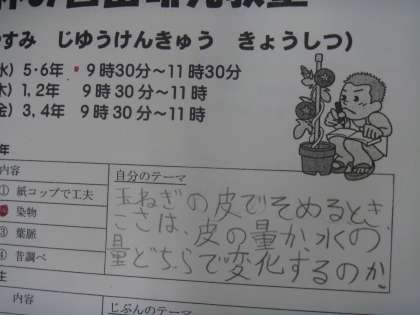 やすみ じゆうけんきゅう きょうしつ)
水) 5・6年 9時30分～11時30分
木) 1,2年 9時30分～11時
金) 3,4年 9時30分～11時
年
内容
① 紙コップで工夫
染物
③ 葉脈
④ 昔調べ
自分のテーマ
玉ねぎの皮でそめるとき、
こさは、皮の量か、水の
量どちらで変化するのか
生
内容
じぶんのテーマ